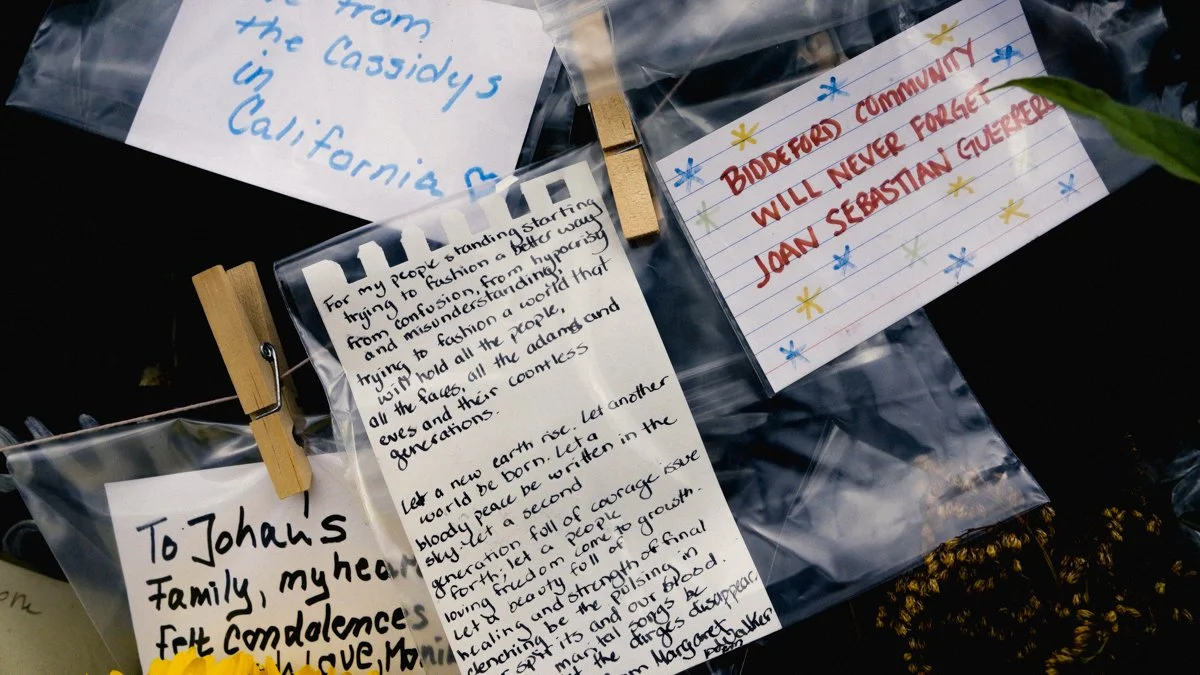 from
the Cassidys
in
California
BIDDEFORD COMMUNITY
WILL NEVER FORGET
JOAN SEBASTIAN GUERRERO
For my people standing starting
trying to fashion a better way
from confusion, from hypocrisy
and misunderstanding,
trying to fashion a world that
will hold all the people,
all the faces, all the adams and
eves and their countless
generations.
Let a new earth rise. Let another
world be born. Let a
bloody peace be written in the
sky. Let a second
generation full of courage issue
forth; let a people
loving freedom come to growth.
Let a beauty full of
healing and strength of final
clenching be the pulsing in
spirits and our blood.
martial songs be
the dirges disappear.
Margaret Walker
poem
To Johan's
Family, my hear
felt condolences
LOVE,